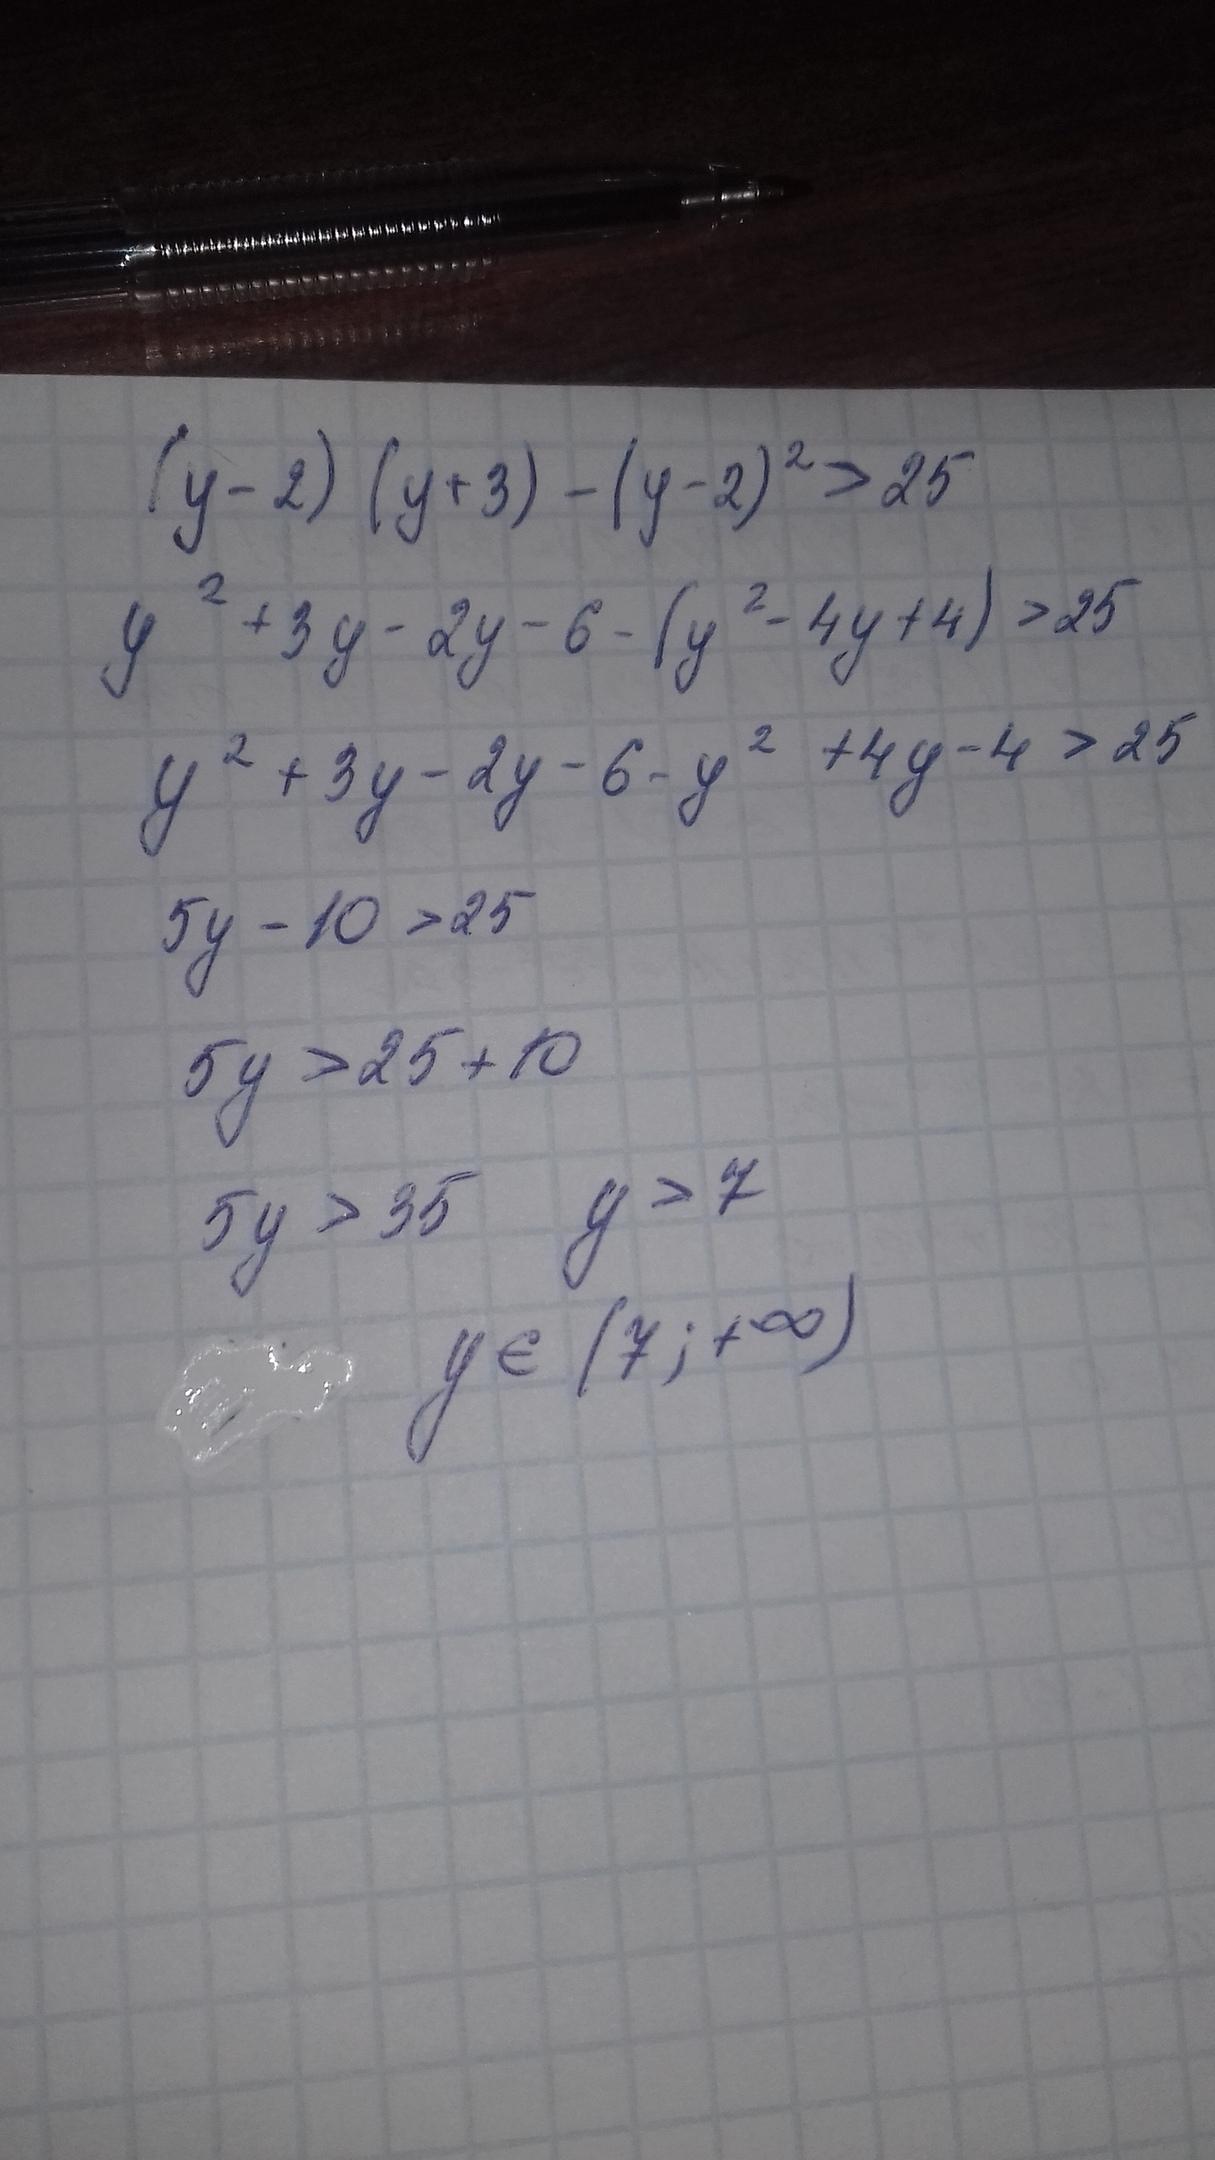 (y-2)(y+3)-(y-2)²>25
y²+3y-2y-6-(y²-4y+4)>25
y²+3y-2y-6-y²+4y-4>25
5y-10>25
5y>25+10
5y>35 y>7
y∈(7;+∞)